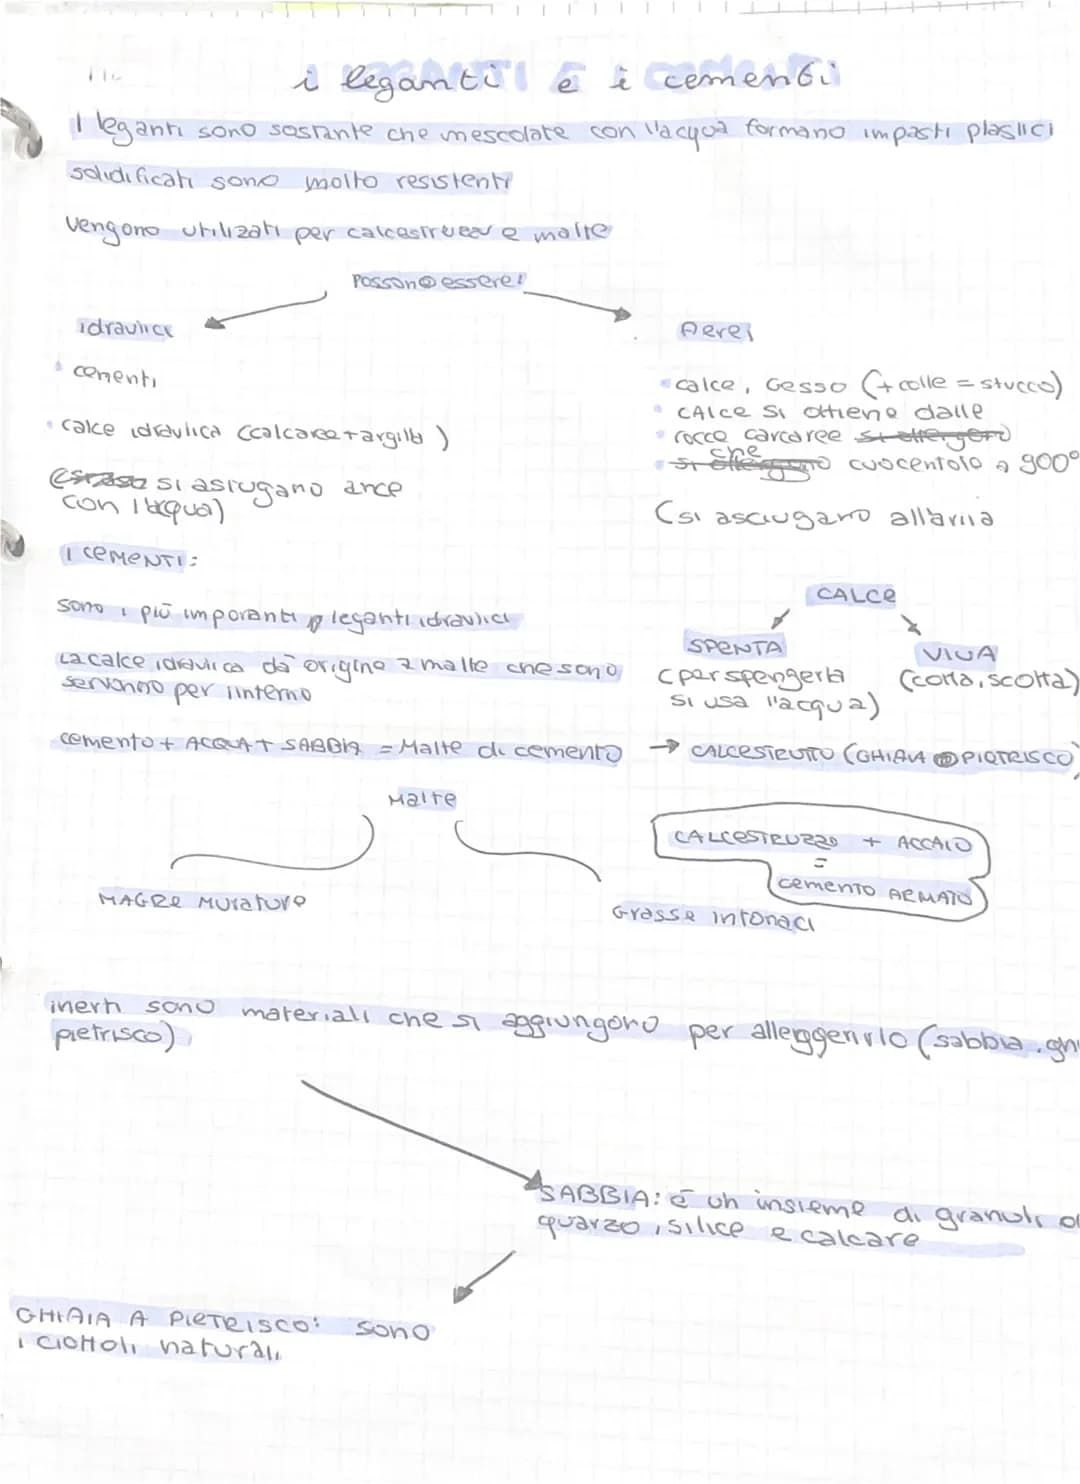 i leganti e i cementi
I leganti sono sostante che mescolate con l'acqua formano impasti plastici
solidificati sono molto resistenti
vengono utilizati per calcestruzzi e malte
possono essere:
idraulici
Aerei
• cementi
• calce idraulica (calcare+argilla)
si asiugano ance
con l'acqua)
• calce, Gesso (+colle = stucco)
• CAlce si ottiene dalle
• rocce carcaree
che
cuocentolo a 900°
(si asciugano all'aria
I CEMENTI:
sono i più imporanti leganti idraulici
La calce idraulica dà origine a malte che sono
servono per l'interno
cemento + ACQUA + SABBIA = Malte di cemento → CALCESTRUTO (GHIAIA O PIETRISCO)
CALCE
SPENTA
(per spengerla
si usa l'acqua)
VIVA
(cotta, scotta)
Malte
MAGRE Murature
Grasse intonaci
CALCESTRUZZO + ACCAIO
=
cemento ARMATO
inerti sono materiali che si aggiungono per alleggerirlo (sabbia, ghi
pietrisco)
SABBIA: è un insieme di granuli di
quarzo, silice e calcare
GHIAIA A PIETRISCO: sono
i ciottoli naturali